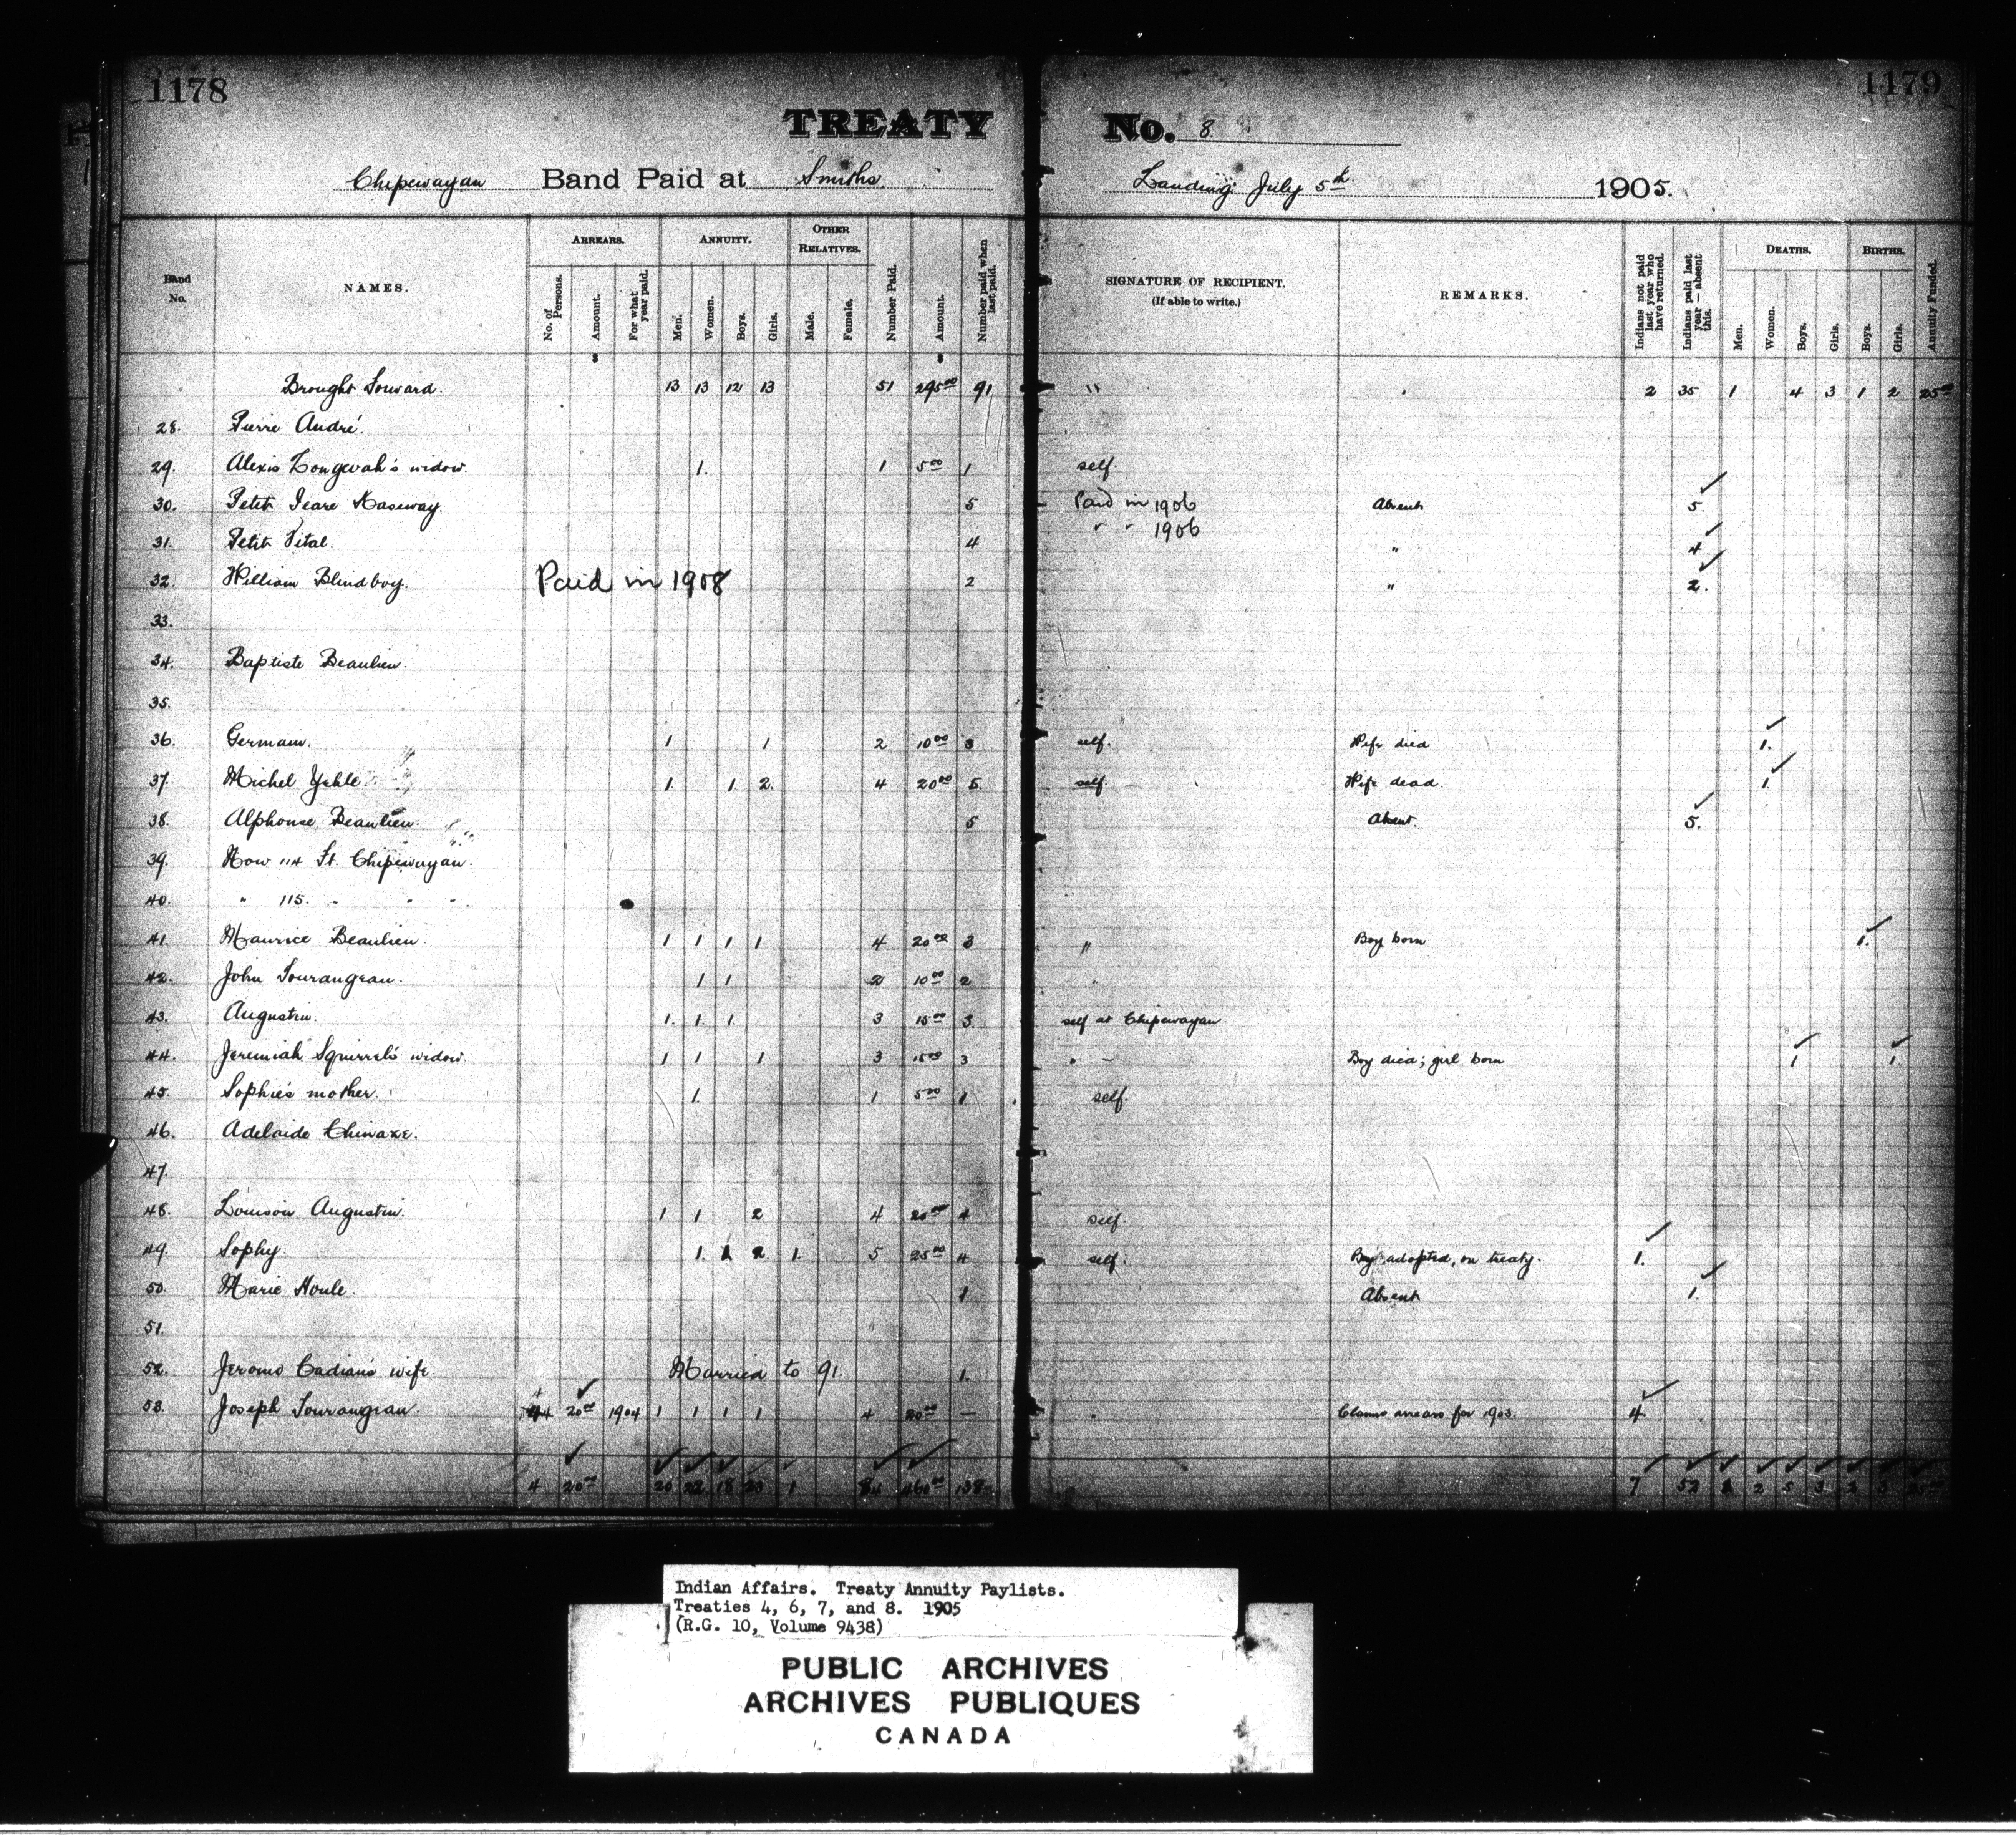 1178
1179
TREATY No. 8.
Chipewayan Band Paid at Smiths Landing July 5th 1905.
Band No.
NAMES.
ARREARS.
No. of Persons.
Amount.
For what year paid.
ANNUITY.
Men.
Women.
Boys.
Girls.
OTHER RELATIVES.
Male.
Female.
Number Paid.
Amount.
Number paid when last paid.
SIGNATURE OF RECIPIENT.
(If able to write.)
REMARKS.
Indians not paid last year who have returned.
Indians paid last year — absent this.
DEATHS.
Men.
Women.
Boys.
Girls.
BIRTHS.
Boys.
Girls.
Annuity Funded.
Brought Forward. 13 13 12 13 51 295 00 91 " 2 35 1 4 3 1 2 25 00
28. Pierre André.
29. Alexis widow. 1. 1 5 00 1 self.
30. Petit 5 Paid in 1906 Absent 5.
31. Petit Vital. 4 " " 1906 " 4
32. William Blindboy. Paid in 1908 2 " 2.
33.
34. Baptiste Beaulieu.
35.
36. Germain. 1 1 2 10 00 3 self. Wife died 1.
37. Michel 1. 1 2. 4 20 00 5. self. Wife dead. 1
38. Alphonse Beaulieu. 5 Absent. 5.
39. Now 114 Ft. Chipewayan.
40. " 115. " " "
41. Maurice Beaulieu. 1 1 1 1 4 20 00 3 " Boy born 1.
42. John Tourangeau. 1 1 2 10 00 2 "
43. Augustin. 1. 1. 1. 3 15 00 3 self at Chipewayan
44. Jeremiah Squirrel's widow. 1 1 1 3 15 00 3 " Boy died; girl born 1 1
45. Sophie's mother. 1. 1 5 00 1 self.
46. Adelaide
47.
48. Louison Augustin. 1 1 2 4 20 00 4 self.
49. Sophy 1. 1 2 1. 5 25 00 4 self. Boy adopted, on treaty. 1.
50. Marie Houle. 1 Absent 1.
51.
52. Jerome Cadian's wife. Married to 91. 1.
53. Joseph Tourangeau. 4 20 00 1904 1 1 1 1 4 20 00 — " Claims arrears for 1903. 4
4 20 00 20 22 18 23 1 84 460 00 138 7 52 2 5 3 2 3 25 00
Indian Affairs. Treaty Annuity Paylists.
Treaties 4, 6, 7, and 8. 1905
(R.G. 10, Volume 9438)
PUBLIC ARCHIVES
ARCHIVES PUBLIQUES
CANADA